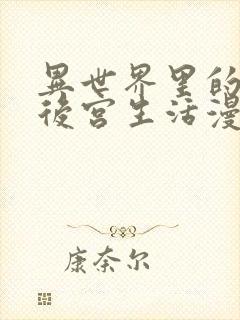 異世界里的
後宮生活漫
康奈尔